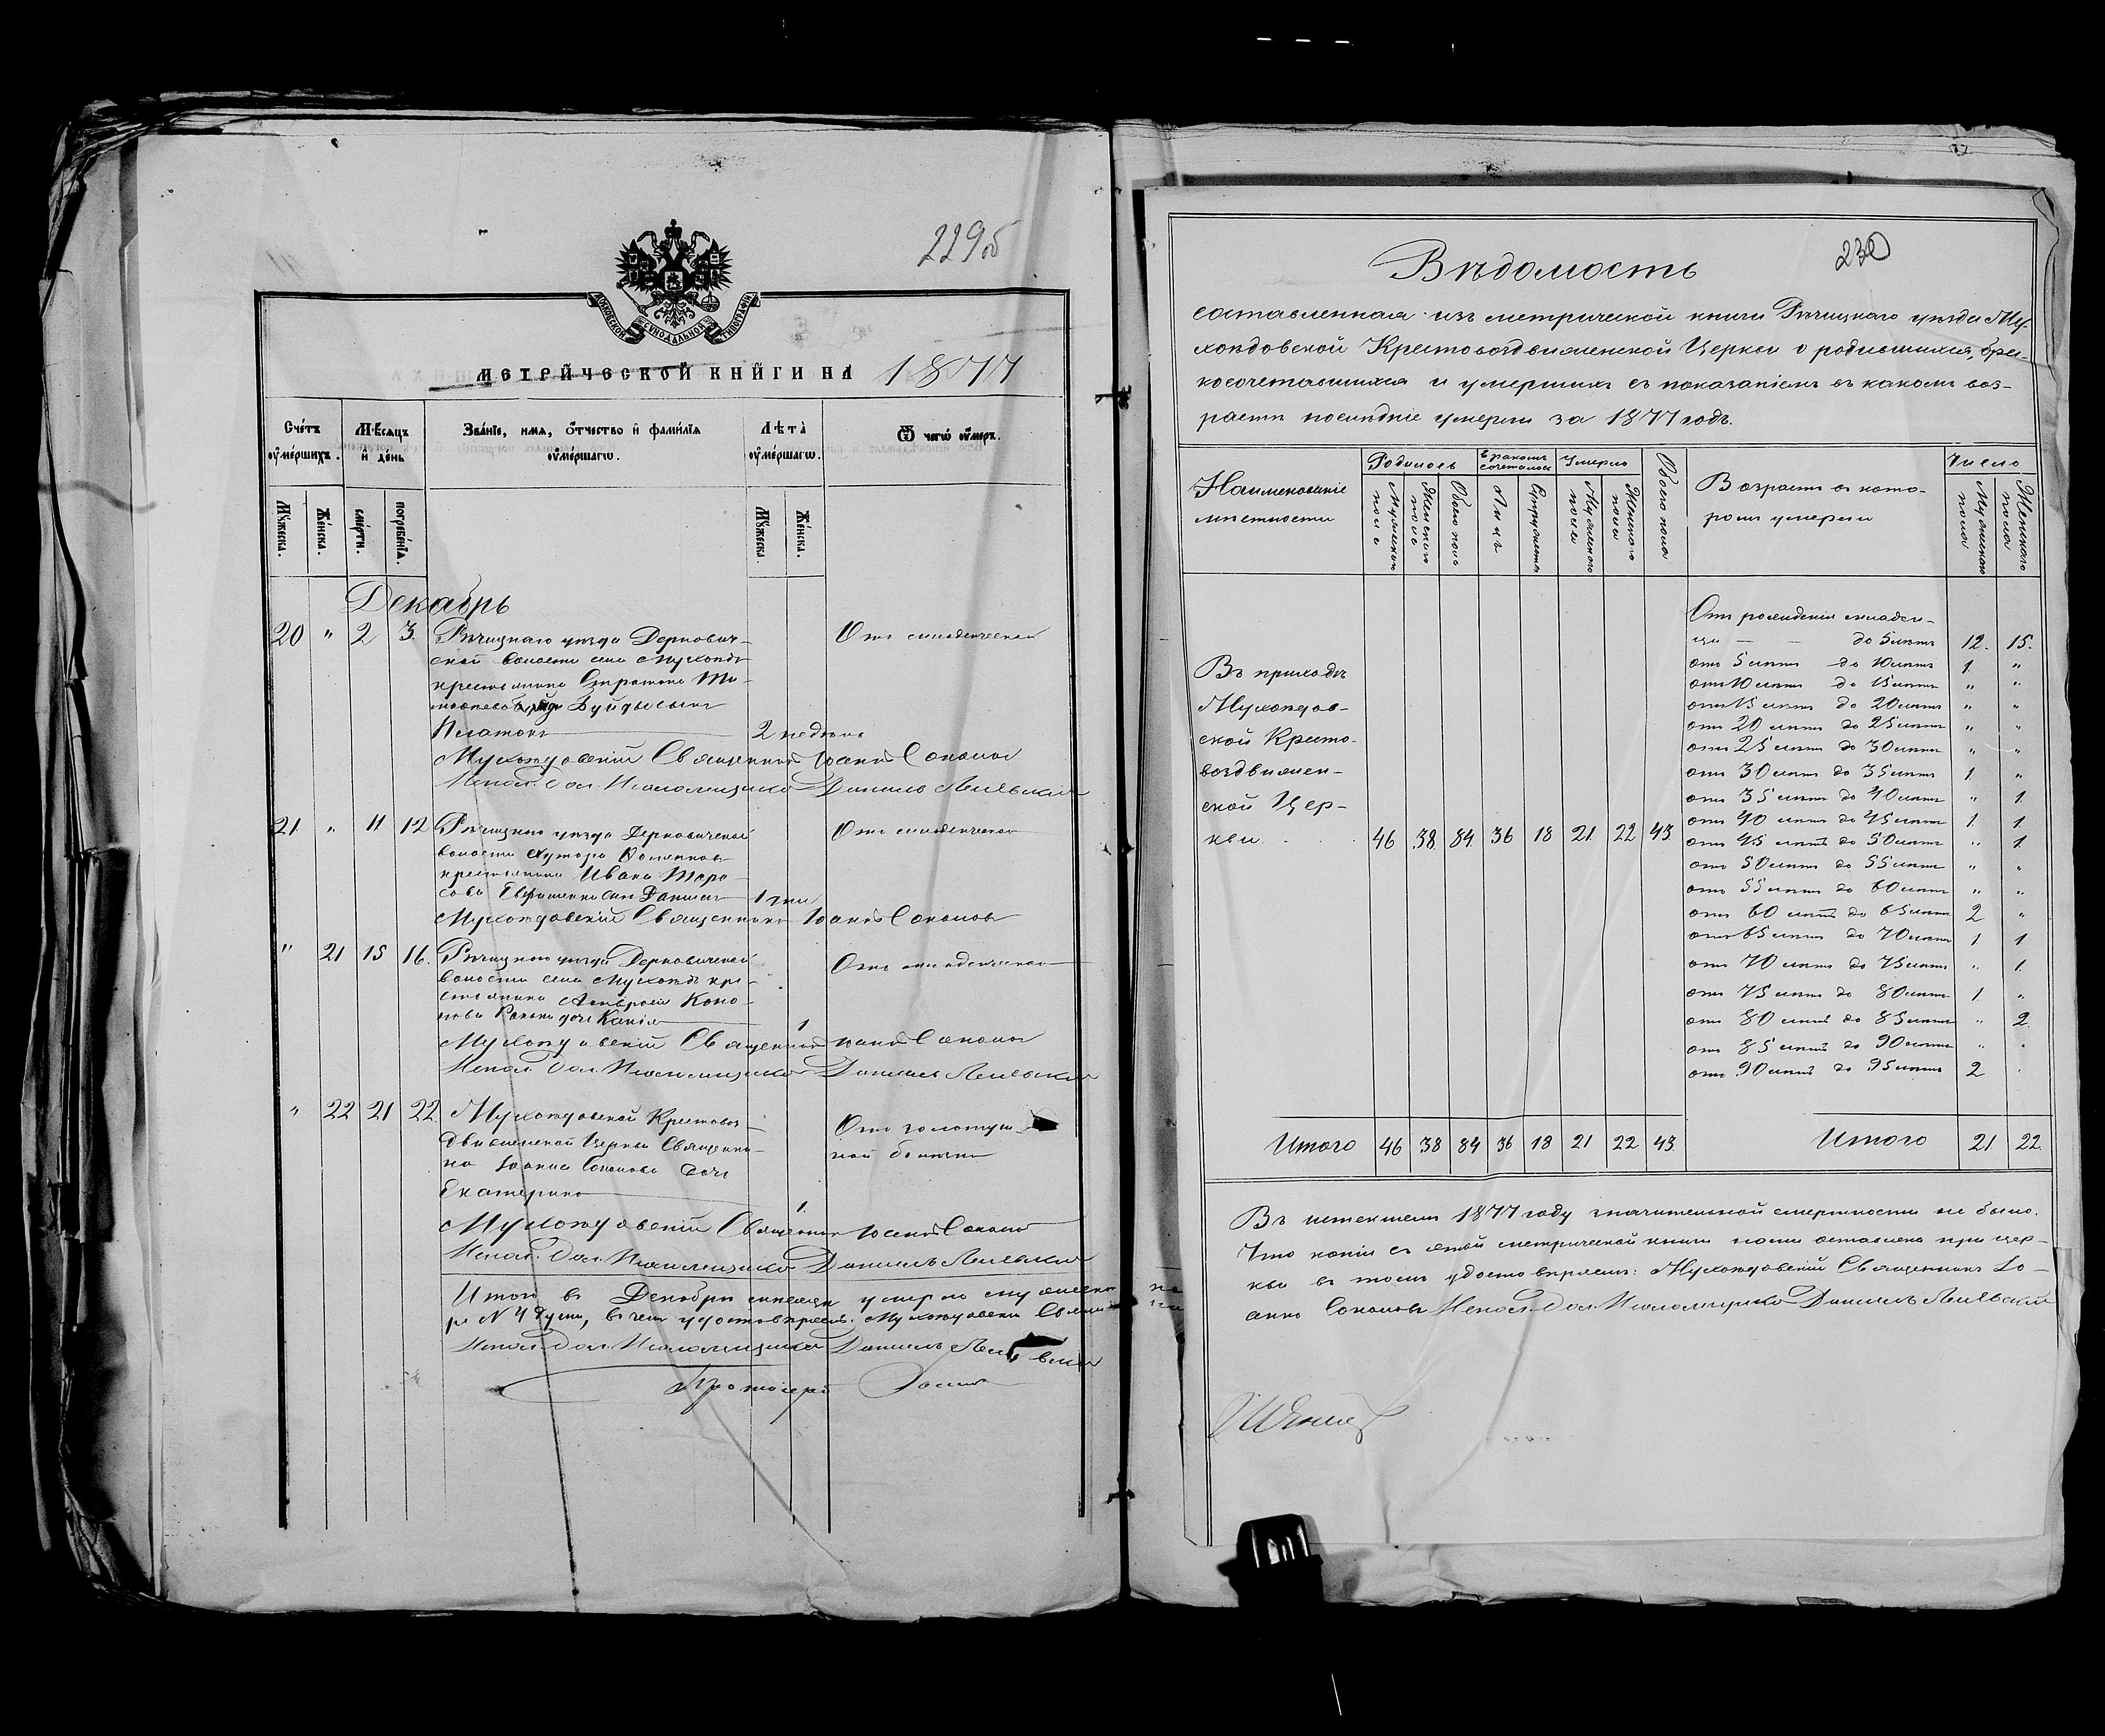 229об
МОСКОВСКОЙ СѴНОДАЛЬНОЙ ТИПОГРАФІИ
МЕТРИЧЕСКОЙ КНИГИ НА 1877
Счетъ оумершихъ.
Мѣсяцъ и день
Званіе, имя, отчество и фамилія оумершагѡ.
Лѣта оумершагѡ.
Ѿ чегѡ оумеръ.
Мужеска.
Женска.
смерти.
погребенія.
Мужеска
Женска.
Декабрь
20 " 2 3. Рѣчицкаго уѣзда Дернович- Отъ младенческой
ской волости села Мухоѣдъ
крестьянина Стратона Ти-
Буйды сынъ
Платонъ 2 недѣли
Мухоѣдовскій Священникъ Іоаннъ Соколовъ
Испол. дол. Псаломщика Даніилъ
21 " 11 12 Рѣчицкаго уѣзда Дерновичской Отъ младенческой
волости хутора
крестьянина Ивана Тара-
сова сынъ Даніилъ 1 дни
Мухоѣдовскій Священникъ Іоаннъ Соколовъ
" 21 15 16. Рѣчицкаго уѣзда Дерновичской Отъ младенческой
волости села Мухоѣдъ кре-
стьянина Коно-
нова дочь 1
Мухоѣдовскій Священникъ Іоаннъ Соколовъ
Испол. дол. Псаломщика Даніилъ
" 22 21 22. Мухоѣдовской Крестовоз- Отъ золотуш-
движенской Церкви Священни- ной болѣзни
ка Іоанна Соколова дочь
Екатерина 1.
Мухоѣдовскій Священникъ Іоаннъ Соколовъ
Испол. дол. Псаломщика Даніилъ
Итого въ Декабрѣ мѣсяцѣ умерло мужеска
№ 4 души, въ чемъ удостовѣряемъ: Мухоѣдовскій Священ
Испол. дол. Псаломщика Даніилъ
Протоіерей
230
Вѣдомость
составленная изъ метрической книги Рѣчицкаго уѣзда Му-
хоѣдовской Крестовоздвиженской Церкви о родившихся, бра-
косочетавшихся и умершихъ съ показаніемъ въ какомъ воз-
растѣ послѣдніе умерли за 1877 годъ.
Наименованіе мѣстности
Родилось
Мужескаго пола
Женскаго пола
Обоего пола
Бракомъ сочеталось
Лицъ
Супружествъ
Умерло
Мужескаго пола
Женскаго пола
Обоего пола
Возрастъ въ кото-
ромъ умерли
Число
Мужескаго пола
Женскаго пола
Въ приходѣ
Мухоѣдов-
ской Кресто-
воздвижен-
ской Цер-
кви 46 38 84 36 18 21 22 43
Отъ рожденія младен-
ца — — до 5 лѣтъ 12. 15.
отъ 5 лѣтъ до 10 лѣтъ 1 "
отъ 10 лѣтъ до 15 лѣтъ " "
отъ 15 лѣтъ до 20 лѣтъ " "
отъ 20 лѣтъ до 25 лѣтъ " "
отъ 25 лѣтъ до 30 лѣтъ " "
отъ 30 лѣтъ до 35 лѣтъ 1 "
отъ 35 лѣтъ до 40 лѣтъ " 1
отъ 40 лѣтъ до 45 лѣтъ 1 1
отъ 45 лѣтъ до 50 лѣтъ " 1
отъ 50 лѣтъ до 55 лѣтъ " "
отъ 55 лѣтъ до 60 лѣтъ " "
отъ 60 лѣтъ до 65 лѣтъ 2 "
отъ 65 лѣтъ до 70 лѣтъ 1 1
отъ 70 лѣтъ до 75 лѣтъ " 1
отъ 75 лѣтъ до 80 лѣтъ 1 "
отъ 80 лѣтъ до 85 лѣтъ " 2
отъ 85 лѣтъ до 90 лѣтъ " "
отъ 90 лѣтъ до 95 лѣтъ 2 "
Итого 46 38 84 36 18 21 22 43. Итого 21 22.
Въ истекшемъ 1877 году значительной смертности не было.
Что копія съ этой метрической книги нами оставлена при цер-
кви въ томъ удостовѣряемъ: Мухоѣдовскій Священникъ Іо-
аннъ Соколовъ Испол. дол. Псаломщика Даніилъ